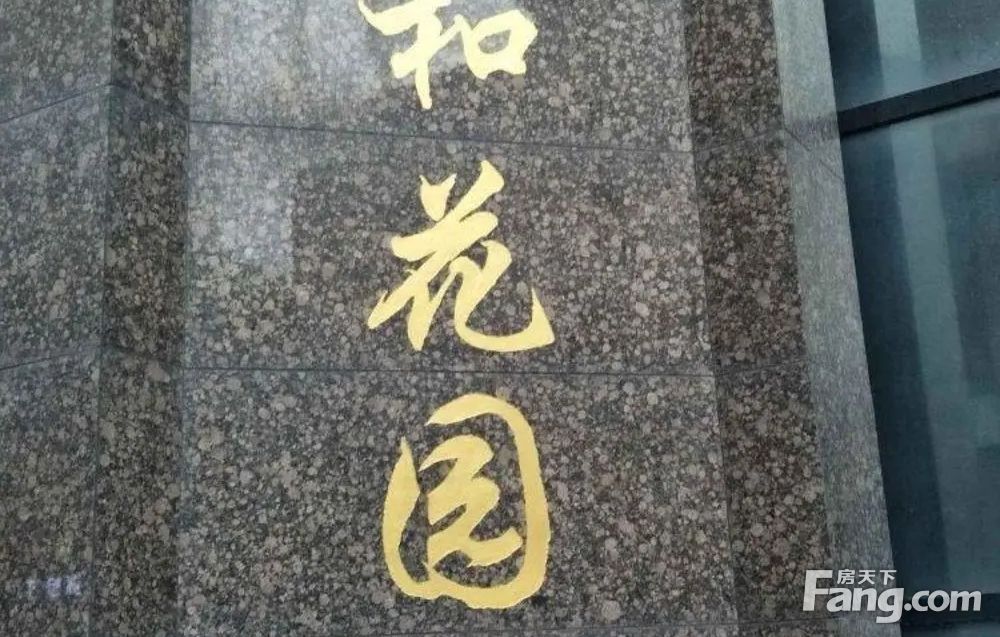 和
花
园
房天下
Fang.com